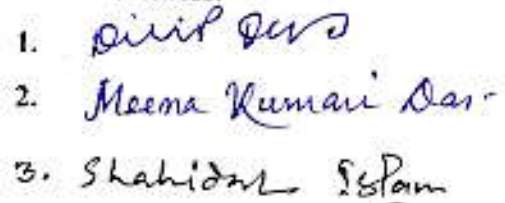 1. Dilip Deva
2. Meena Kumari Das
3. Shahidul Islam